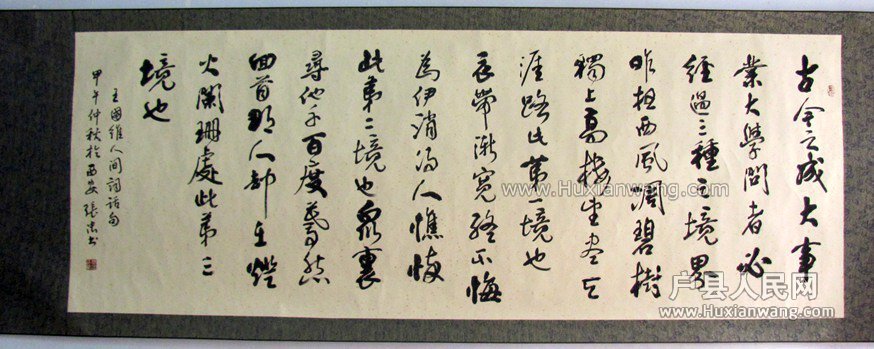 古今之成大事
業大學問者必
經過三種之境界
昨夜西風凋碧樹
獨上高樓望盡天
涯路此第一境也
衣帶漸寬終不悔
為伊消得人憔悴
此第二境也眾裏
尋他千百度驀然
回首那人卻在燈
火闌珊處此第三
境也
王國維人間詞話句
甲午仲秋於西安張忠书
www.Huxianwang.com
户县人民网
www.Huxianwang.com